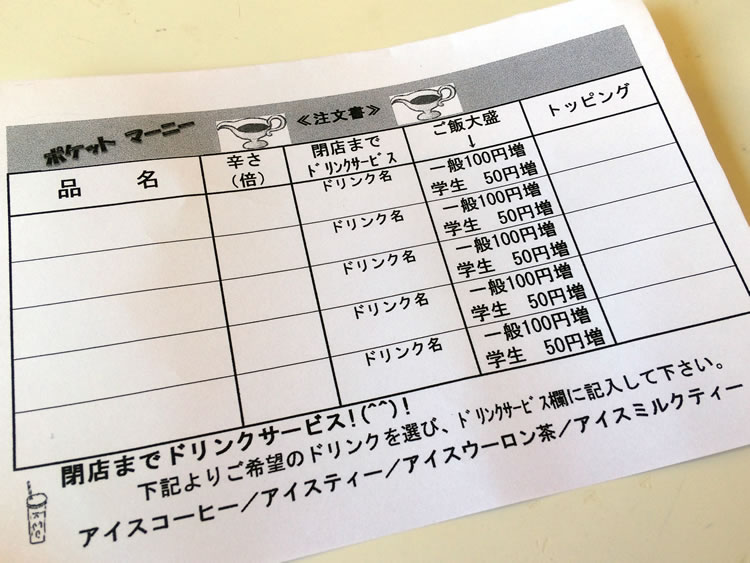 ポケット マーニー
≪注文書≫
品 名
辛さ
(倍)
閉店まで
ﾄﾞﾘﾝｸｻｰﾋﾞｽ
ご飯大盛
↓
トッピング
ドリンク名
一般100円増
学生 50円増
ドリンク名
一般100円増
学生 50円増
ドリンク名
一般100円増
学生 50円増
ドリンク名
一般100円増
学生 50円増
ドリンク名
一般100円増
学生 50円増
閉店までドリンクサービス!(^^)!
下記よりご希望のドリンクを選び、ﾄﾞﾘﾝｸｻｰﾋﾞｽ欄に記入して下さい。
アイスコーヒー／アイスティー／アイスウーロン茶／アイスミルクティー